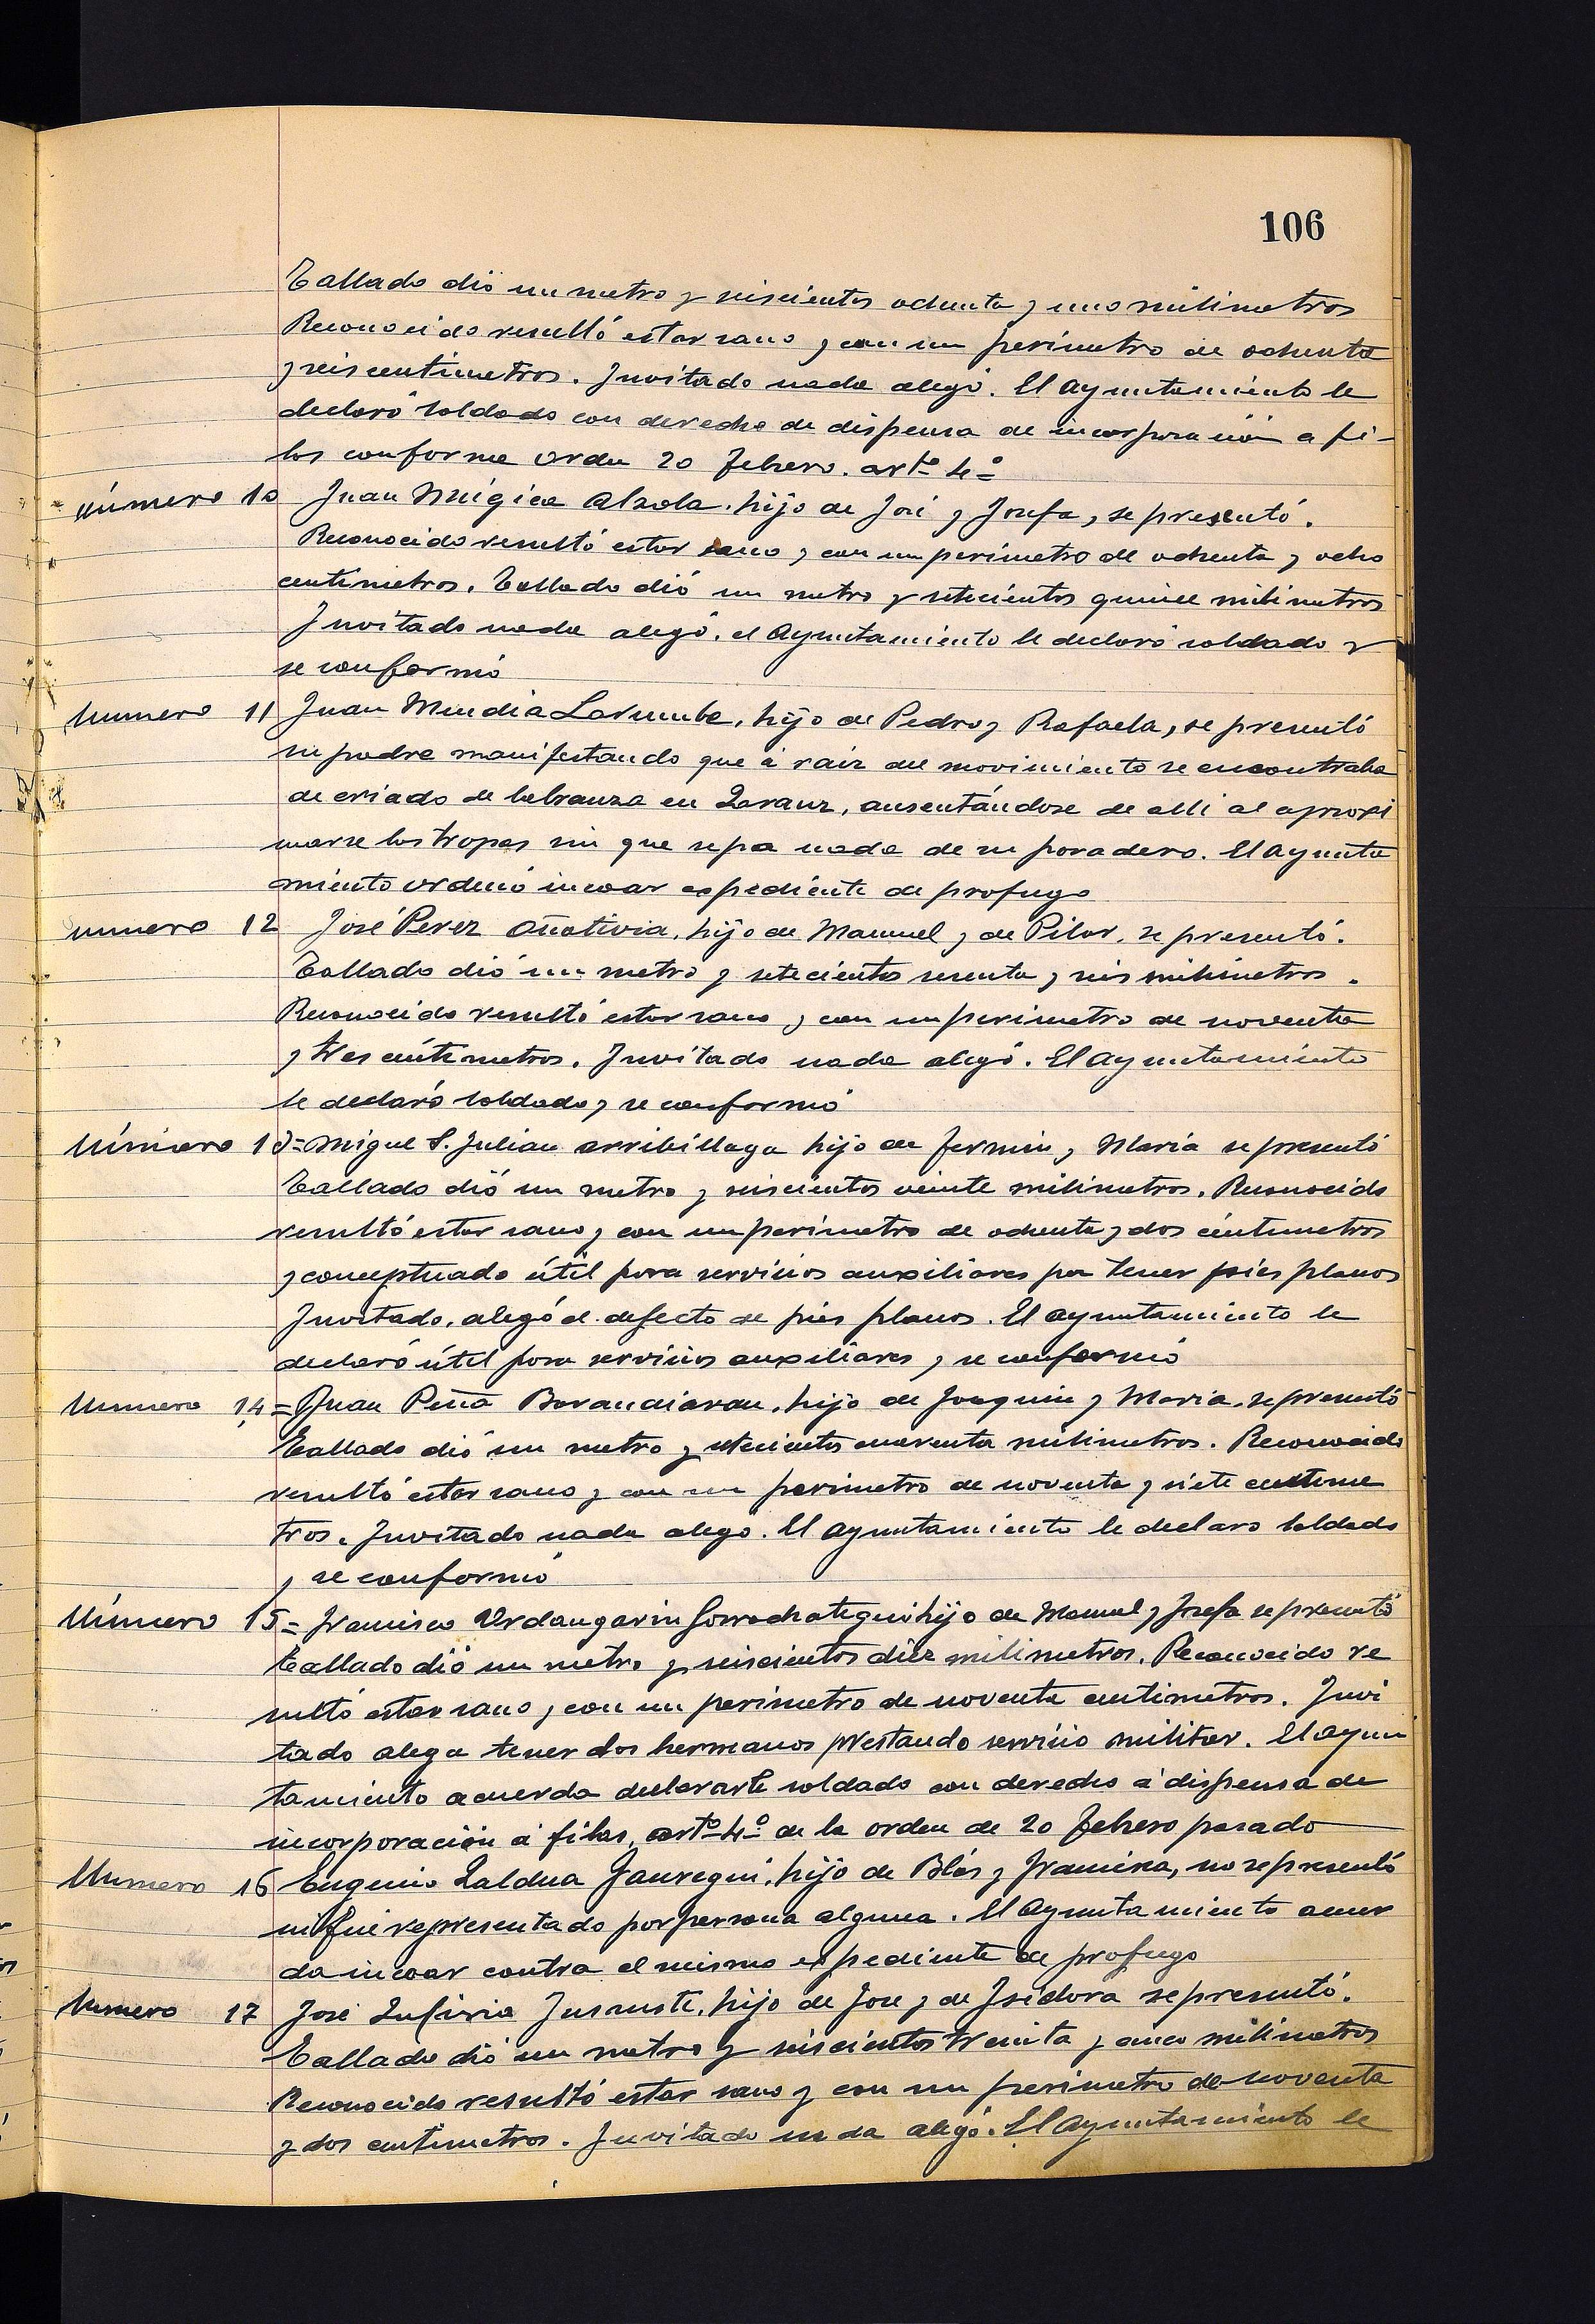 106
Tallado dió un metro y seiscientos ochenta y uno milimetros
Reconocido resultó estar sano y con un perimetro de ochenta
y seis centimetros. Invitado nada alegó. El Ayuntamiento le
declaró soldado con derecho de dispensa de incorporación a fi-
las conforme orden 20 Febrero. artº 4º
Número 10 Juan Múgica Alzola, hijo de José y Josefa, se presentó.
Reconocido resultó estar sano y con un perimetro de ochenta y ocho
centimetros. Tallado dió un metro y setecientos quince milimetros
Invitado nada alegó, el Ayuntamiento le declaró soldado y
se conformó
Numero 11 Juan Mendia Larumbe, hijo de Pedro y Rafaela, se presentó
su padre manifestando que á raiz del movimiento se encontraba
de criado de labranza en Zarauz, ausentándose de alli al aproxi
marse las tropas sin que sepa nada de su paradero. El Ayunta
miento ordenó incoar expediente de profugo
numero 12 José Perez Oñativia, hijo de Manuel y de Pilar, se presentó.
Tallado dió un metro y setecientos sesenta y seis milimetros.
Reconocido resultó estar sano y con un perimetro de noventa
y tres centimetros. Invitado nada alegó. El Ayuntamiento
le declaró soldado y se conformó
Número 13= Miguel S. Julian Arribillaga hijo de Fermin y Maria se presentó
Tallado dió un metro y seiscientos veinte milimetros. Reconocido
resultó estar sano y con un perimetro de ochenta y dos centimetros
y conceptuado útil para servicios auxiliares por tener piés planos
Invitado, alegó el defecto de piés planos. El ayuntamiento le
declaró útil para servicios auxiliares y se conformó
Numero 14= Juan Peña Barandiaran, hijo de Joaquin y Maria, se presentó
Tallado dió un metro y setecientos cuarenta milimetros. Reconocido
resultó estar sano y con un perimetro de noventa y siete centime
tros. Invitado nada alegó. El Ayuntamiento le declaro soldado
y se conformó
Número 15= Francisco Urdangarin Gorrochategui hijo de Manuel y Josefa se presentó
Tallado dió un metro y seiscientos diez milimetros. Reconocido re
sultó estar sano y con un perimetro de noventa centimetros. Invi
tado alega tener dos hermanos prestando servicio militar. El Ayun
tamiento acuerda declararle soldado con derecho á dispensa de
incorporación á filas, artº 4º de la orden de 20 Febrero pasado
Numero 16 Eugenio Zaldua Jauregui, hijo de Blás y Francisca, no se presentó
ni fue representado por persona alguna. El Ayuntamiento acuer
da incoar contra el mismo expediente de profugo
Numero 17 José Zufiria Jusuuste, hijo de Jose y de Isidora se presentó.
Tallado dió un metro y seiscientos treinta y cinco milimetros
Reconocido resultó estar sano y con un perimetro de noventa
y dos centimetros. Invitado nada alegó. El Ayuntamiento le